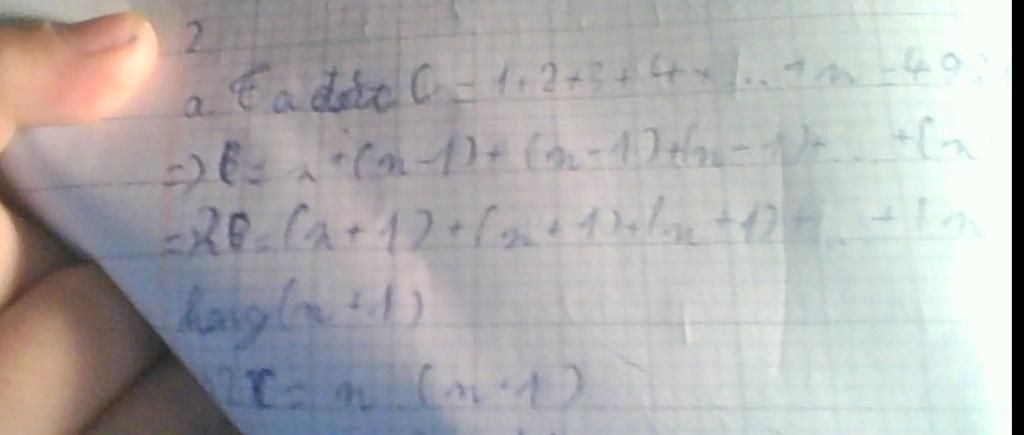 2
a. Ta được C = 1+2+3+4+...+n = 49
=> C = n + (n-1) + (n-1) + (n-1) + ... + (n
=> 2C = (n+1) + (n+1) + (n+1) + ... + (n
(n+1)
2C = n (n+1)